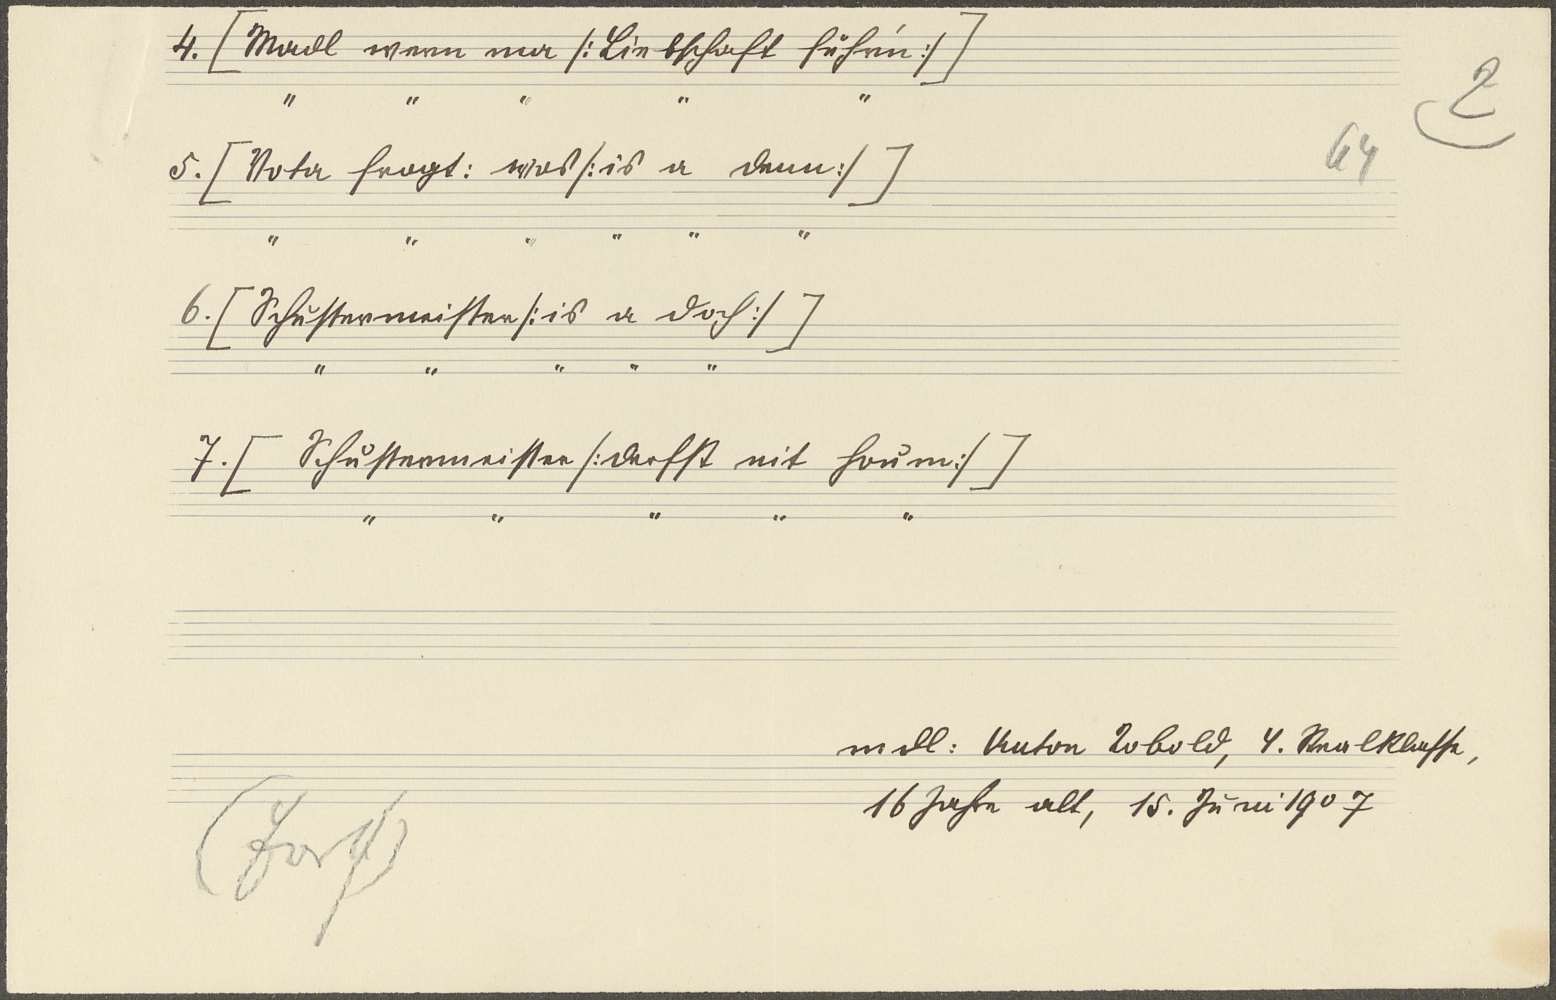 4. [Madl wenn ma /: Liebschaft führn :/]
" " " " "
2
5. [Vota fragt: was /: is a denn :/]
64
" " " " " "
6. [Schustermeister /: is a doch :/]
" " " " "
7. [Schustermeister /: derfst nit haum :/]
" " " " "
mdl: Anton Zobold, 4. Realklasse,
16 Jahre alt, 15. Juni 1907